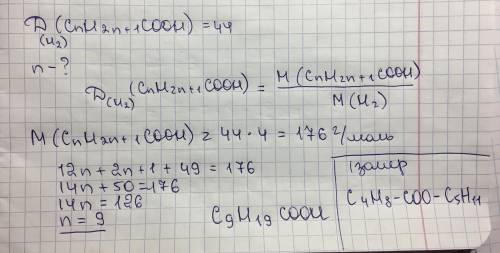 D(H₂) (CnH2n+1COOH) = 44
n - ?
D(H₂) (CnH2n+1COOH) = M(CnH2n+1COOH) / M(H₂)
M(CnH2n+1COOH) = 44·4 = 176 г/моль
12n + 2n + 1 + 49 = 176
14n + 50 = 176
14n = 126
n = 9
C9H19COOH
ізомер
C4H8-COO-C5H11